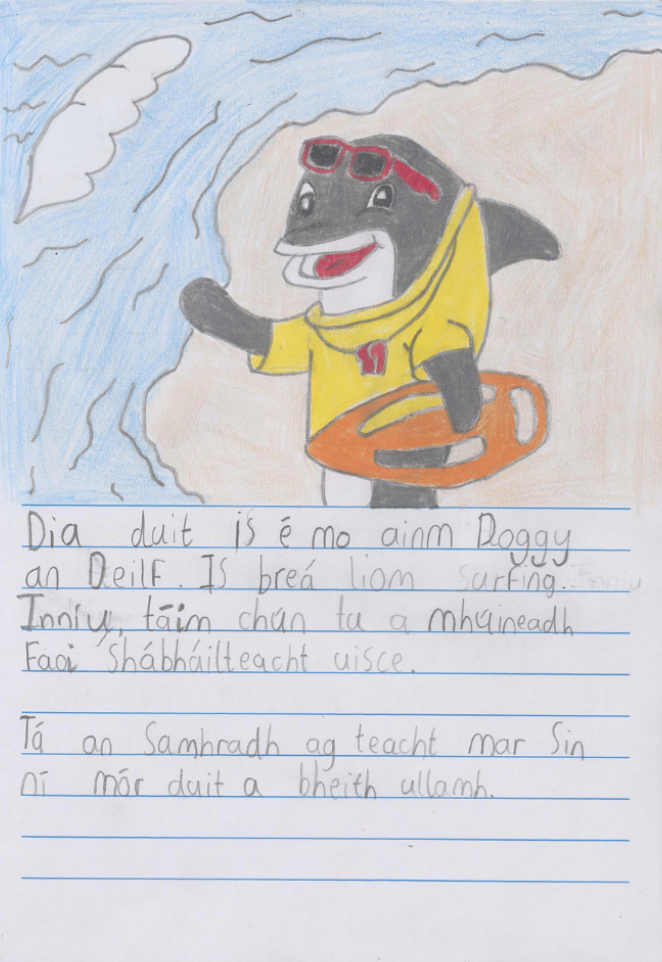 Dia duit is é mo ainm Doggy
an Deilf. Is breá liom surfing.
Inniu, táim chún tu a mhúineadh
Faoi Shábháilteacht uisce.
Tá an Samhradh ag teacht mar Sin
ní mór duit a bheith ullamh.